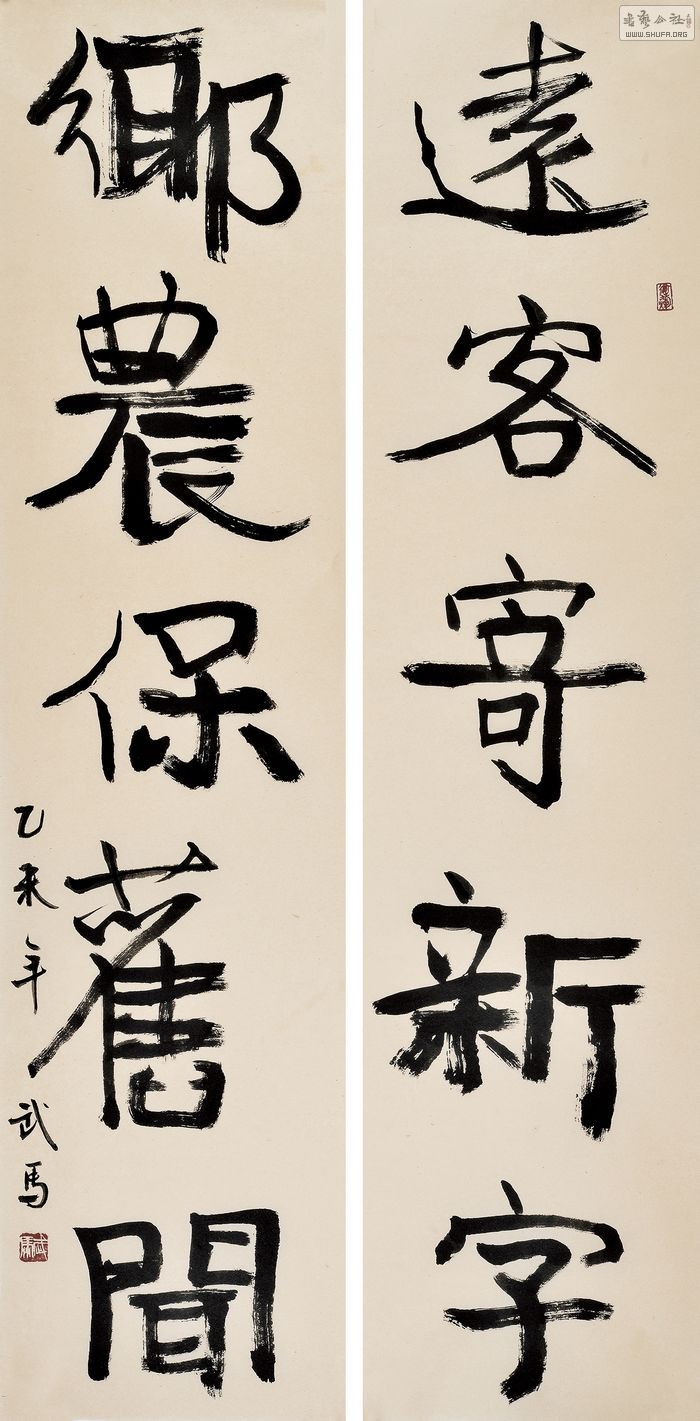 遠客寄新字
鄉農保舊聞
乙未年武馬
書藝公社
WWW.SHUFA.ORG